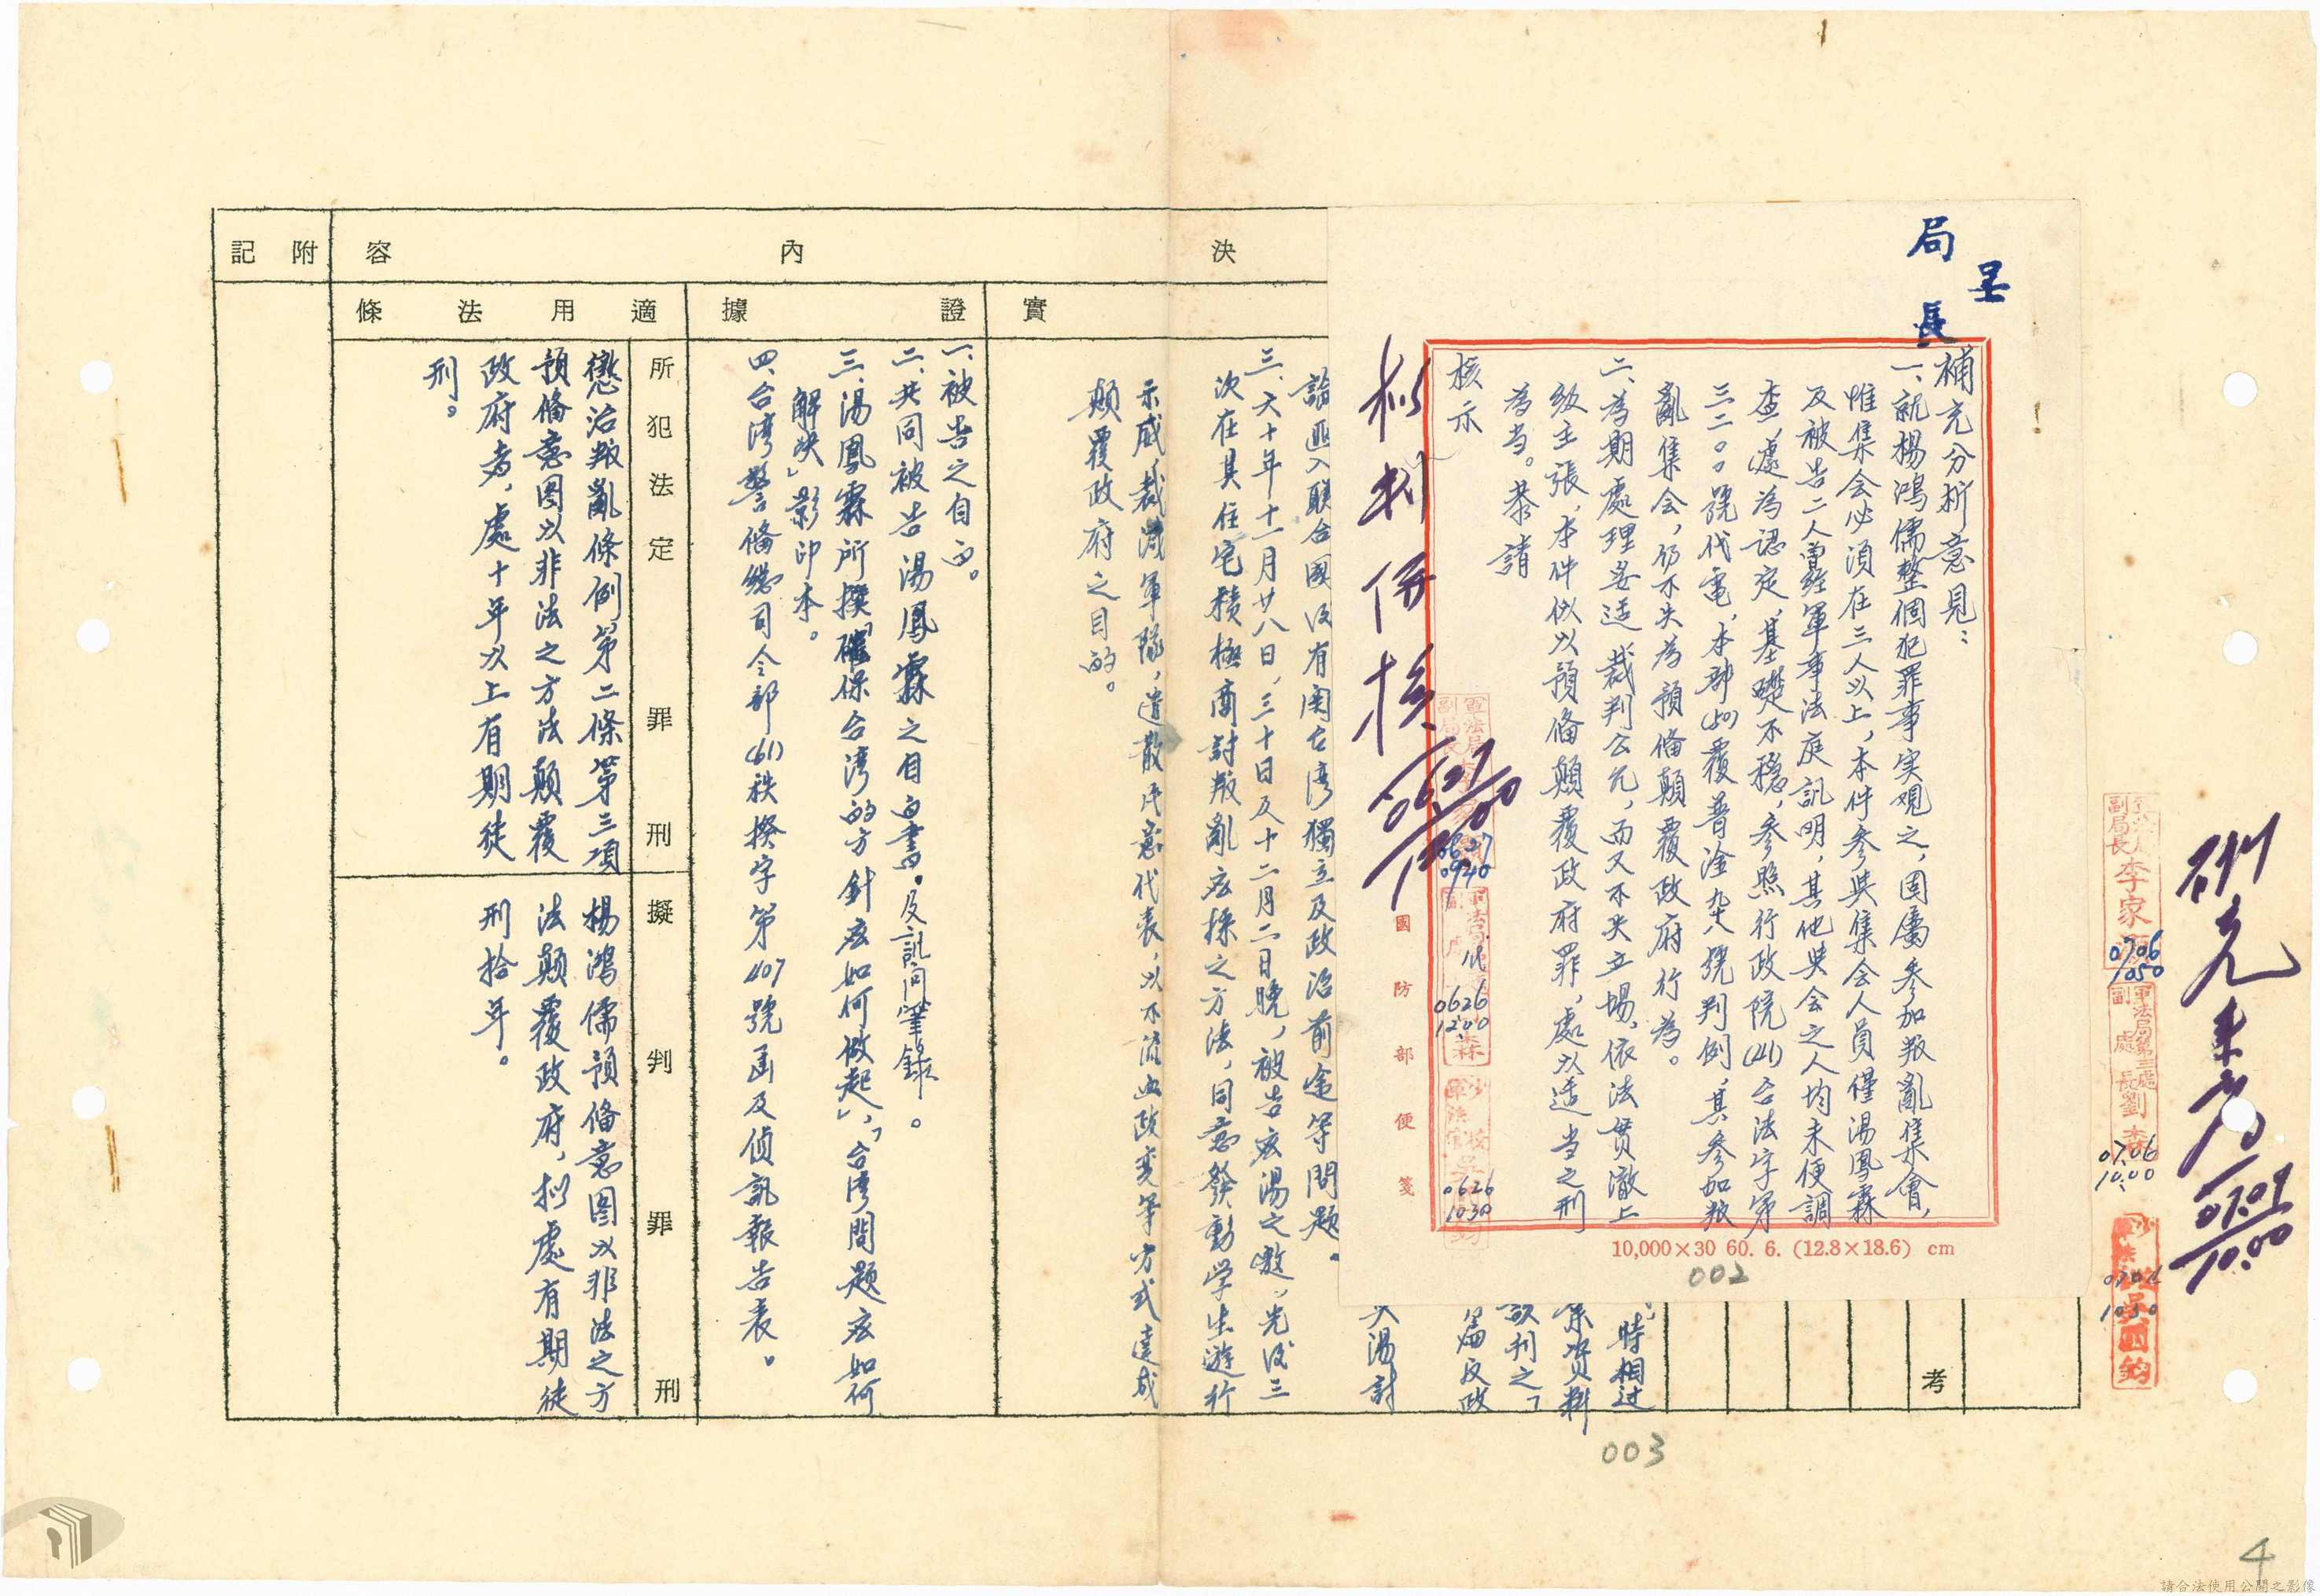 局長
呈
補充分析意見：
一、就楊鴻儒整個犯罪事实观之，固屬参加叛亂集會，
惟集会必須在三人以上，本件参與集会人員僅湯鳳霖
及被告二人曾經軍事法庭訊明，其他與会之人均未便調
查，遽為認定，基礎不穩，参照行政院(41)台法字第
三二〇〇號代電，本部(50)覆普淦杂八號判例，其参加叛
亂集会，仍不失為預備顛覆政府行為。
二、為期處理妥适，裁判公允，而又不失立場，依法贯澈上
級主張，本件似以預備顛覆政府罪，處以适当之刑
為当。恭請
核示
拟判併核
0627
0627
0940
0626
1200
0626
1030
國防部便箋
10,000×30 60. 6. (12.8×18.6) cm
002
研究来商
0707
10.00
副局長 李家
0706
1050
軍法局第三處
副處長劉
0706
10.00
1030
吳國鈞
考
時相过
資料
刊之「
篇反政
湯討
論匪入联合國後有関台湾獨立及政治前途等問題。
三、六十年十一月廿八日，三十日及十二月二日晚，被告应湯之邀，先後三
次在其住宅積極商討叛亂应採之方法，同意發動学生遊行
示威，裁减軍隊，遣散民意代表，以不流血政变等方式達成
顛覆政府之目的。
決
內
容
附記
實
證據
一、被告之自白。
二、共同被告湯鳳霖之自白書，及訊问筆錄。
三、湯鳳霖所撰「確保台湾的方針应如何做起」，「台湾問題应如何
解决」影印本。
四、台湾警備總司令部(61)秩揆字第407號函及偵訊報告表。
適用法條
所犯法定罪刑
懲治叛亂條例第二條第三項
預備意图以非法之方法顛覆
政府者，處十年以上有期徒
刑。
擬判罪刑
楊鴻儒預備意图以非法之方
法顛覆政府，拟處有期徒
刑拾年。
003
4
請合法使用公開之影像